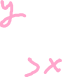 y
>x